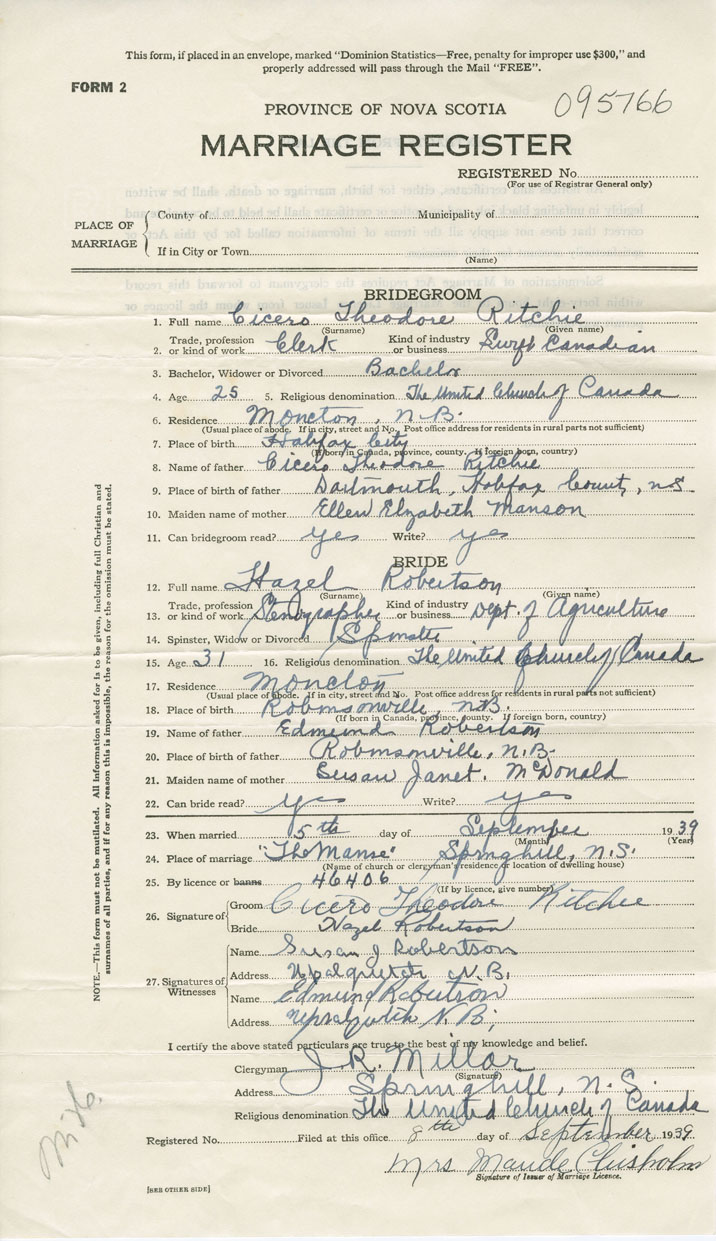 This form, if placed in an envelope, marked "Dominion Statistics—Free, penalty for improper use $300," and
properly addressed will pass through the Mail "FREE".
FORM 2
095766
PROVINCE OF NOVA SCOTIA
MARRIAGE REGISTER
REGISTERED No.
(For use of Registrar General only)
PLACE OF MARRIAGE
County of Municipality of
If in City or Town
(Name)
BRIDEGROOM
1. Full name Cicero Theodore Ritchie
(Surname) (Given name)
2. Trade, profession or kind of work Clerk Kind of industry or business Canadian
3. Bachelor, Widower or Divorced Bachelor
4. Age 25 5. Religious denomination The United Church of Canada
6. Residence Moncton, N.B.
(Usual place of abode. If in city, street and No. Post office address for residents in rural parts not sufficient)
7. Place of birth Halifax City
(If born in Canada, province, county. If foreign born, country)
8. Name of father Cicero Theodore Ritchie
9. Place of birth of father Dartmouth, Halifax County, N.S
10. Maiden name of mother Ellen Elizabeth Manson
11. Can bridegroom read? yes Write? yes
BRIDE
12. Full name Hazel Robertson
(Surname) (Given name)
13. Trade, profession or kind of work Stenographer Kind of industry or business Dept. of Agriculture
14. Spinster, Widow or Divorced Spinster
15. Age 31 16. Religious denomination The United Church of Canada
17. Residence Moncton
(Usual place of abode. If in city, street and No. Post office address for residents in rural parts not sufficient)
18. Place of birth Robinsonville, N.B.
(If born in Canada, province, county. If foreign born, country)
19. Name of father Edmund Robertson
20. Place of birth of father Robinsonville, N.B.
21. Maiden name of mother Susan Janet. McDonald
22. Can bride read? yes Write? yes
23. When married 5th day of September 1939
(Month) (Year)
24. Place of marriage "The Manse" Springhill, N.S.
(Name of church or clergyman's residence or location of dwelling house)
25. By licence or banns 46406
(If by licence, give number)
26. Signature of
Groom Cicero Theodore Ritchie
Bride Hazel Robertson
27. Signatures of Witnesses
Name Susan J Robertson
Address N.B.
Name Edmund Robertson
Address N.B.
I certify the above stated particulars are true to the best of my knowledge and belief.
Clergyman J. R. Millar
(Signature)
Address Springhill, N.S.
Religious denomination The United Church of Canada
Registered No. Filed at this office 8th day of September 1939
Mrs Maude Chisholm
Signature of Issuer of Marriage Licence.
[SEE OTHER SIDE]
NOTE.—This form must not be mutilated. All information asked for is to be given, including full Christian and
surnames of all parties, and if for any reason this is impossible, the reason for the omission must be stated.